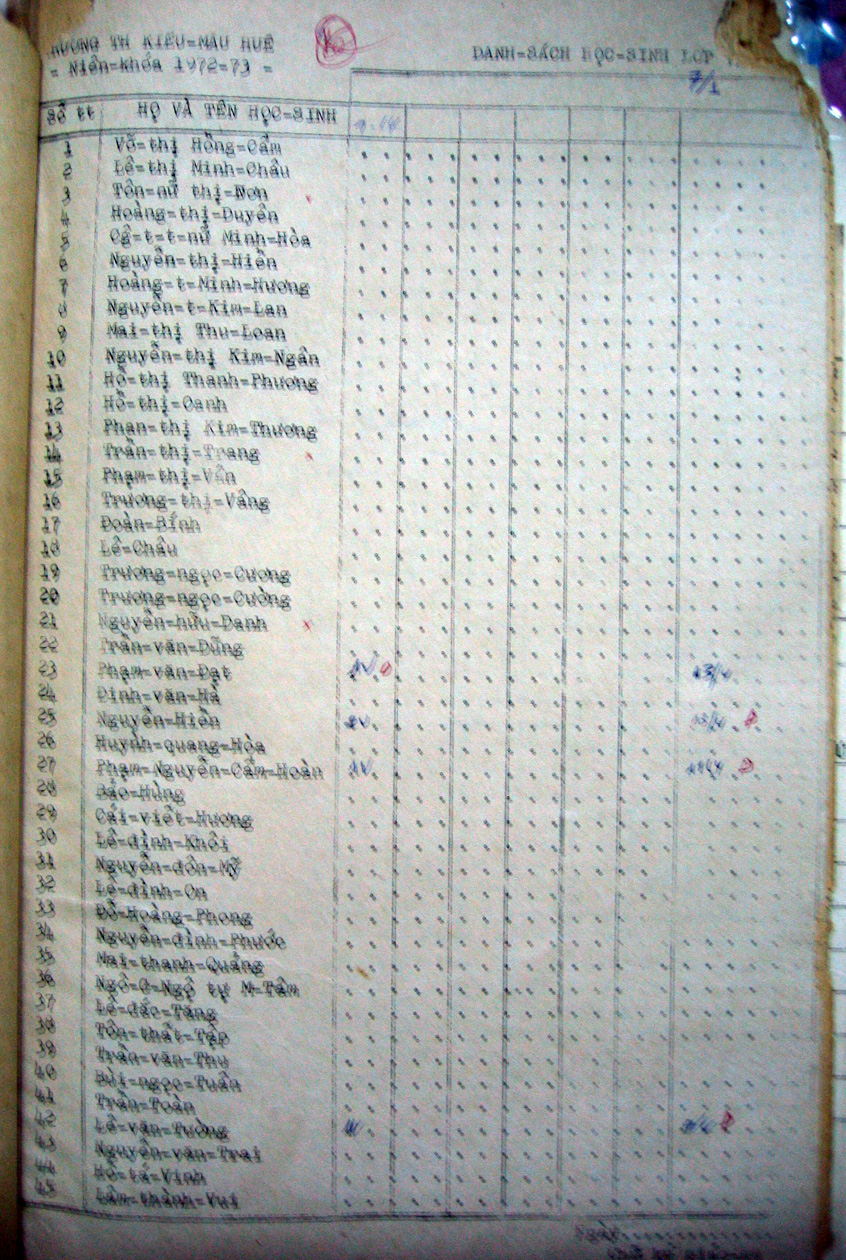 TH KIỂU=MẪU HUẾ
= Niên=khóa 1972=73 =
DANH=SÁCH HỌC=SINH LỚP
7/1
Số tt HỌ VÀ TÊN HỌC=SINH
1 Võ=thị Hồng=Cẩm
2 Lê=thị Minh=Châu
3 Tôn=nữ thị=Đơn
4 Hoàng=thị=Duyên
5 Cg=t=t=nữ Minh=Hòa
6 Nguyễn=thị=Hiền
7 Hoàng=t=Minh=Hương
8 Nguyễn=t=Kim=Lan
9 Mai=thị Thu=Loan
10 Nguyễn=thị Kim=Ngân
11 Hồ=thị Thanh=Phương
12 Hồ=thị=Oanh
13 Phan=thị Kim=Thương
14 Trần=thị=Trang
15 Phạm=thị=Vân
16 Trương=thị=Vâng
17 Đoàn=Bính
18 Lê=Châu
19 Trương=ngọc=Cương
20 Trương=ngọc=Cường
21 Nguyễn=hữu=Danh
22 Trần=văn=Dũng
23 Phạm=văn=Đạt
24 Đinh=văn=Hà
25 Nguyễn=Hiền
26 Huỳnh=quang=Hòa
27 Phạm=Nguyễn=Cẩm=Hoàn
28 Bảo=Hùng
29 Cái=viết=Hương
30 Lê=đình=Khôi
31 Nguyễn=đôn=Mỹ
32 Lê=đình=On
33 Đỗ=Hoàng=Phong
34 Nguyễn=đình=Phước
35 Mai=thanh=Quảng
36 Ngô=O=Ngộ tự M=Tâm
37 Lê=đắc=Tăng
38 Tôn=thất=Tập
39 Trần=văn=Thu
40 Bùi=ngọc=Tuấn
41 Trần=Toàn
42 Lê=văn=Tường
43 Nguyễn=văn=Trai
44 Hồ=tá=Vinh
45 Lâm=thành=Vui